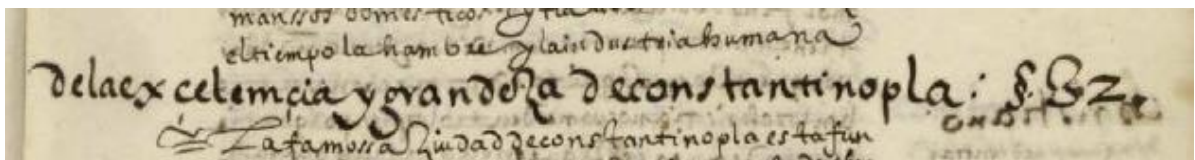 manssos domesticos y
el tiempo la hambre y la industria humana
delaex celemçia y grandeza de constantinopla: §. 82.
La famossa Ziudad de constantinopla esta fun